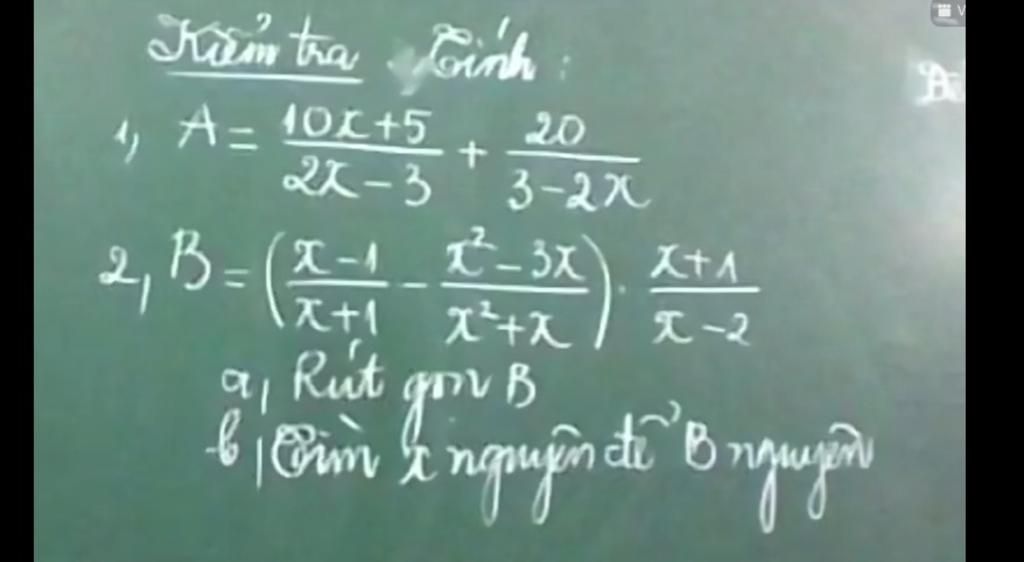 Kiểm tra. Tính:
1, A = \frac{10x+5}{2x-3} + \frac{20}{3-2x}
2, B = \left(\frac{x-1}{x+1} - \frac{x^2-3x}{x^2+x}\right) \cdot \frac{x+1}{x-2}
a, Rút gọn B
b, Tìm x nguyên để B nguyên